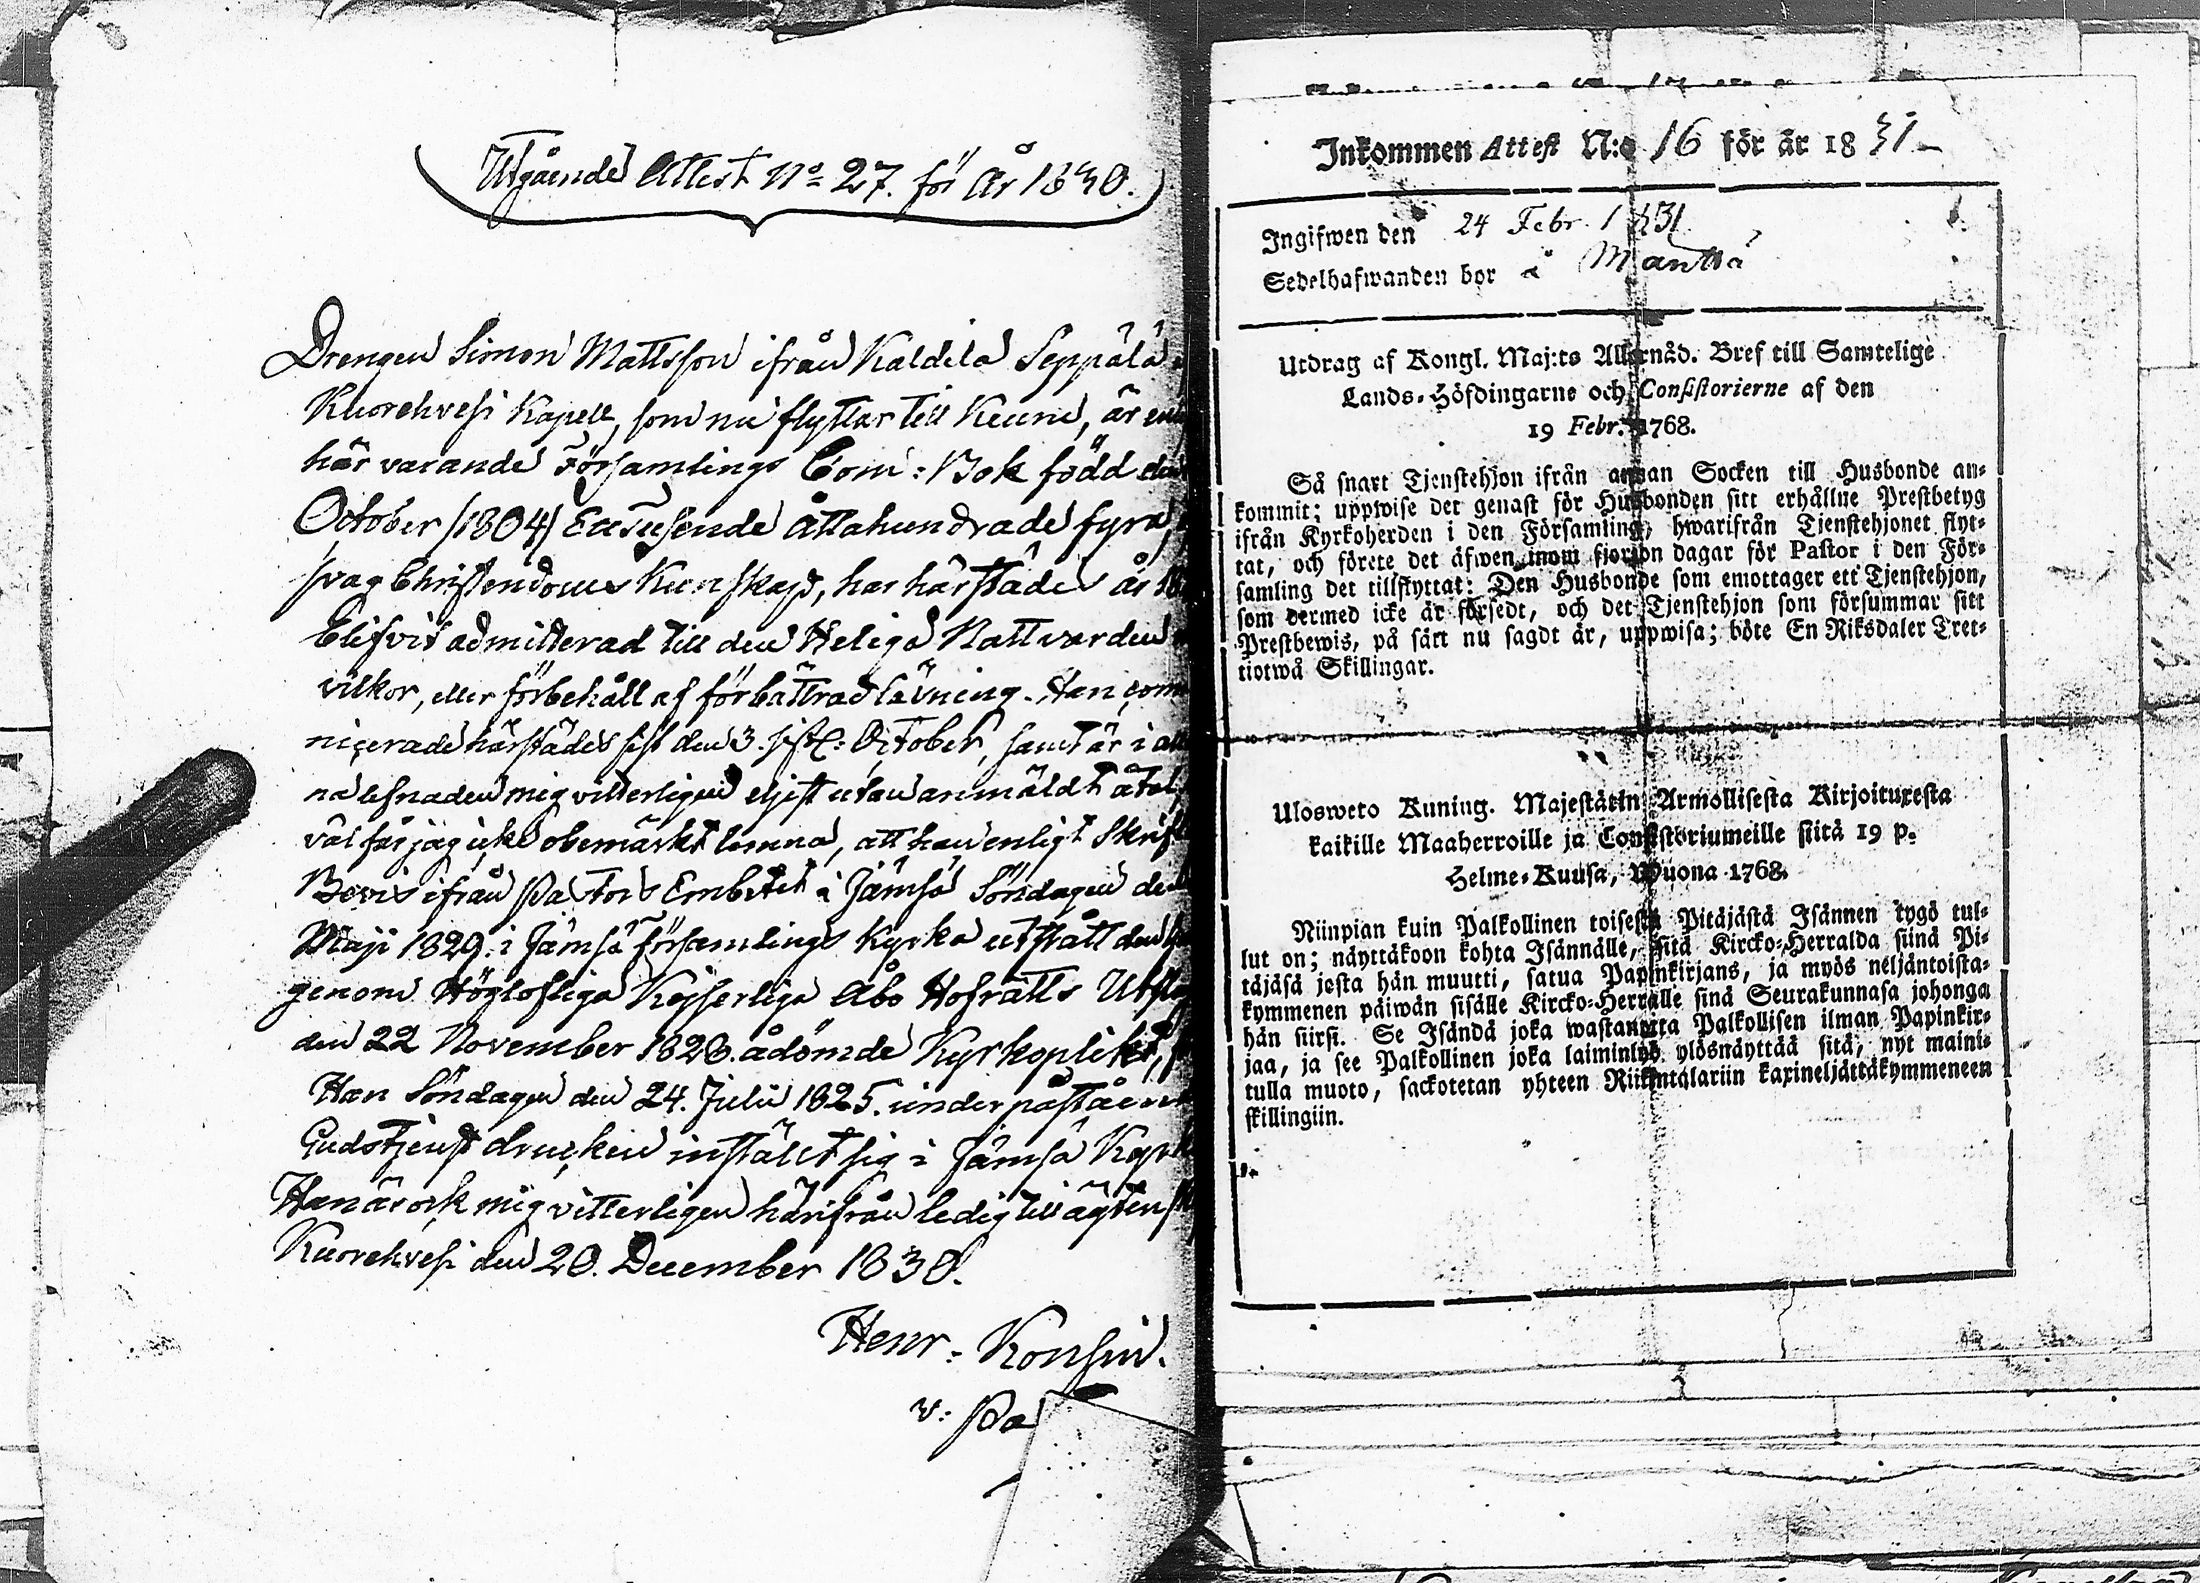 Utgående Attest No 27. för År 1830.
Drengen Simon Mattsson ifrån Kaldila Seppälä
Kuorehvesi Kapell, som nu flyttar till Keuru, är
här varande Församlings Com: Bok född den
October (1804) Ettusende åttahundrade fyra,
svag Christendoms Kunskap, har härstädes år
blifvit admitterad till den Heliga Nattvarden
vilkor, eller förbehåll af förbättrad läsning. Han com
nicerade härstädes sist den 3. sistl: October, samt är i
na lefnaden mig vitterligen ej utan anmäldt åtal,
får jag icke obemärkt lemna, att han enligt Skrift
Bevis ifrån Pastors Embetet i Jämsä Söndagen den
Maji 1829. i Jämsä församlings Kyrka utstått den
genom Höglofliga Kejserliga Åbo Hofrätts Utsla
den 22 November 1828. ådömde Kyrkoplikt,
Han Söndagen den 24. Julii 1825. under påstående
Gudstjenst drucken instält sig i Jämsä Kyrk
Han är ock mig vitterligen härifrån ledig till ägtensk
Kuorehvesi den 20. December 1830.
Henr: Konsin.
v: Pa
Inkommen Attest N:o 16 för år 1831
Ingifwen den 24 Febr. 1831
Sedelhafwanden bor å Mänttä
Utdrag af Kongl. Maj:ts Allernåd. Bref till Samtelige
Lands-Höfdingarne och Consistorierne af den
19 Febr. 1768.
Så snart Tjenstehjon ifrån annan Socken till Husbonde an-
kommit; uppwise det genast för Husbonden sitt erhållne Prestbetyg
ifrån Kyrkoherden i den Församling, hwarifrån Tjenstehjonet flyt-
tat, och förete det äfwen inom fjorton dagar för Pastor i den För-
samling det tillflyttat: Den Husbonde som emottager ett Tjenstehjon,
som dermed icke är försedt, och det Tjenstehjon som försummar sitt
Prestbewis, på sätt nu sagdt är, uppwisa; böte En Riksdaler Tret-
tiotwå Skillingar.
Ulosweto Kuning. Majestätin Armollisesta Kirjoituxesta
kaikille Maaherroille ja Consistoriumeille siitä 19 p.
Helme-Kuusa, Wuona 1768.
Niinpian kuin Palkollinen toisesta Pitäjästä Isännen tygö tul-
lut on; näyttäkoon kohta Isännälle, sitä Kircko-Herralda siinä Pi-
täjäsä josta hän muutti, satua Papinkirjans, ja myös neljäntoista-
kymmenen päiwän sisälle Kircko-Herralle sinä Seurakunnasa johonga
hän siirsi. Se Isändä joka wastanotta Palkollisen ilman Papinkir-
jaa, ja see Palkollinen joka laiminlyö ylösnäyttää sitä, nyt maini-
tulla muoto, sackotetan yhteen Riikintalariin kaxineljättäkymmeneen
skillingiin.